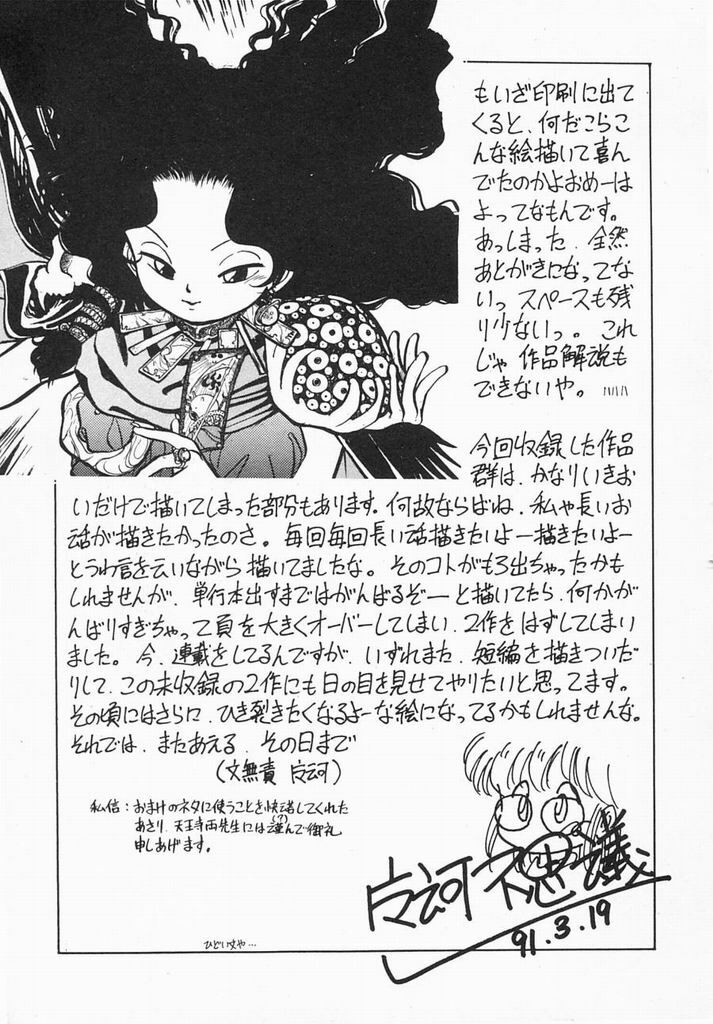 もいざ印刷に出て
くると、何だこらこ
んな絵描いて喜ん
でたのかよおめーは
よってなもんです。
あっしまった、全然
あとがきになってな
いっ スペースも残
り少ないっ。これ
じゃ作品解説も
できないや。
今回収録した作品
群は、かなりいきお
いだけで描いてしまった部分もあります。何故ならばね、私ゃ長いお
話が描きたかったのさ。毎回毎回長い話描きたいよー描きたいよー
とうわ言を云いながら描いてましたな。そのコトがもろ出ちゃったかも
しれませんが、単行本出すまではがんばるぞーと描いてたら、何かが
んばりすぎちゃって頁を大きくオーバーしてしまい、2作をはずしてしまい
ました。今、連載をしてるんですが、いずれまた、短編を描きついだ
りして、この未収録の2作にも日の目を見せてやりたいと思ってます。
その頃にはさらに、ひき裂きたくなるよーな絵になってるかもしれませんな。
それでは、またあえる、その日まで
(文無責 )
私信:おまけのネタに使うことを快諾してくれた
あさり、天王寺両先生には謹んで(?)御礼
申しあげます。
不思議
91.3.19
ひどい文や…